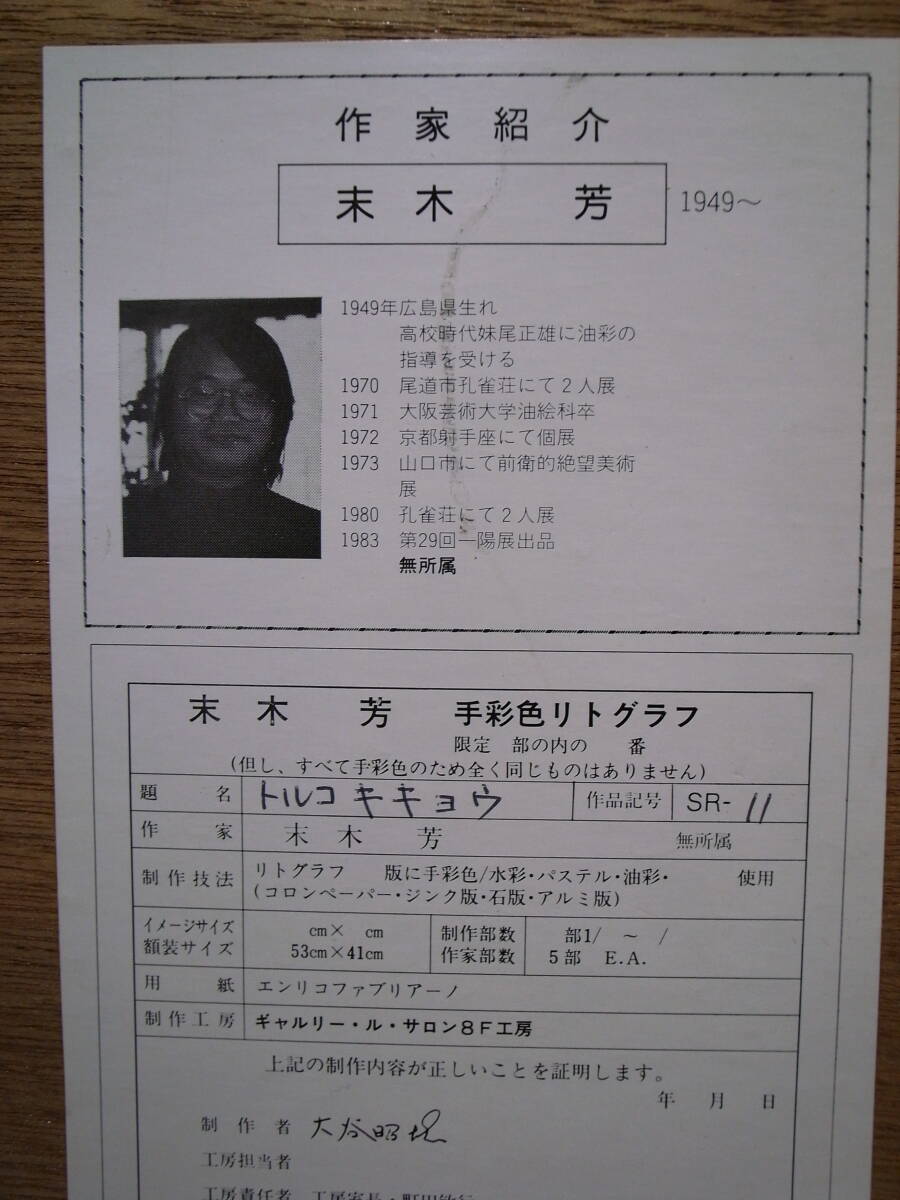 作家紹介
末木 芳 1949〜
1949年広島県生れ
高校時代妹尾正雄に油彩の
指導を受ける
1970 尾道市孔雀荘にて2人展
1971 大阪芸術大学油絵科卒
1972 京都射手座にて個展
1973 山口市にて前衛的絶望美術
展
1980 孔雀荘にて2人展
1983 第29回一陽展出品
無所属
末木 芳 手彩色リトグラフ
限定 部の内の 番
(但し、すべて手彩色のため全く同じものはありません)
題名 トルコキキョウ 作品記号 SR-11
作家 末木芳 無所属
制作技法 リトグラフ 版に手彩色/水彩・パステル・油彩・ 使用
(コロンペーパー・ジンク版・石版・アルミ版)
イメージサイズ cm× cm 制作部数 部1/ ~ /
額装サイズ 53cm×41cm 作家部数 5部 E.A.
用紙 エンリコファブリアーノ
制作工房 ギャルリー・ル・サロン8F工房
上記の制作内容が正しいことを証明します。
年 月 日
制作者 大谷昭
工房担当者
工房責任者 工房室長・町田